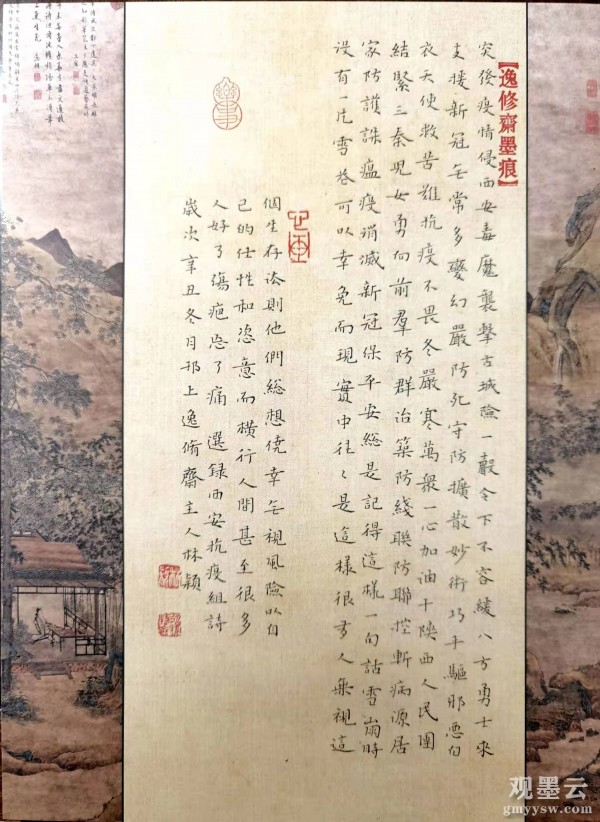 【逸修齋墨痕】
災後疫情侵西安毒魔襲擊古城險一聲令下不容緩八方勇士來
支援新冠無常多變幻嚴防死守防擴散妙術巧手驅邪惡白
衣天使救苦難抗疫不畏冬嚴寒萬衆一心加油干陝西人民團
結緊三秦兒女勇向前羣防群治築防綫聯防聯控斬病源居
家防護誅瘟疫消滅新冠保平安總是記得這樣一句話雪崩時
没有一片雪花可以幸免而現實中往往是這樣很多人無視這
個生存法則他們總想僥幸無視風險以自
己的任性和恣意而橫行人間甚至很多
人好了傷疤忘了痛選録西安抗疫組詩
歲次辛丑冬月邗上逸脩齋主人林穎
观墨云
gmyysw.com